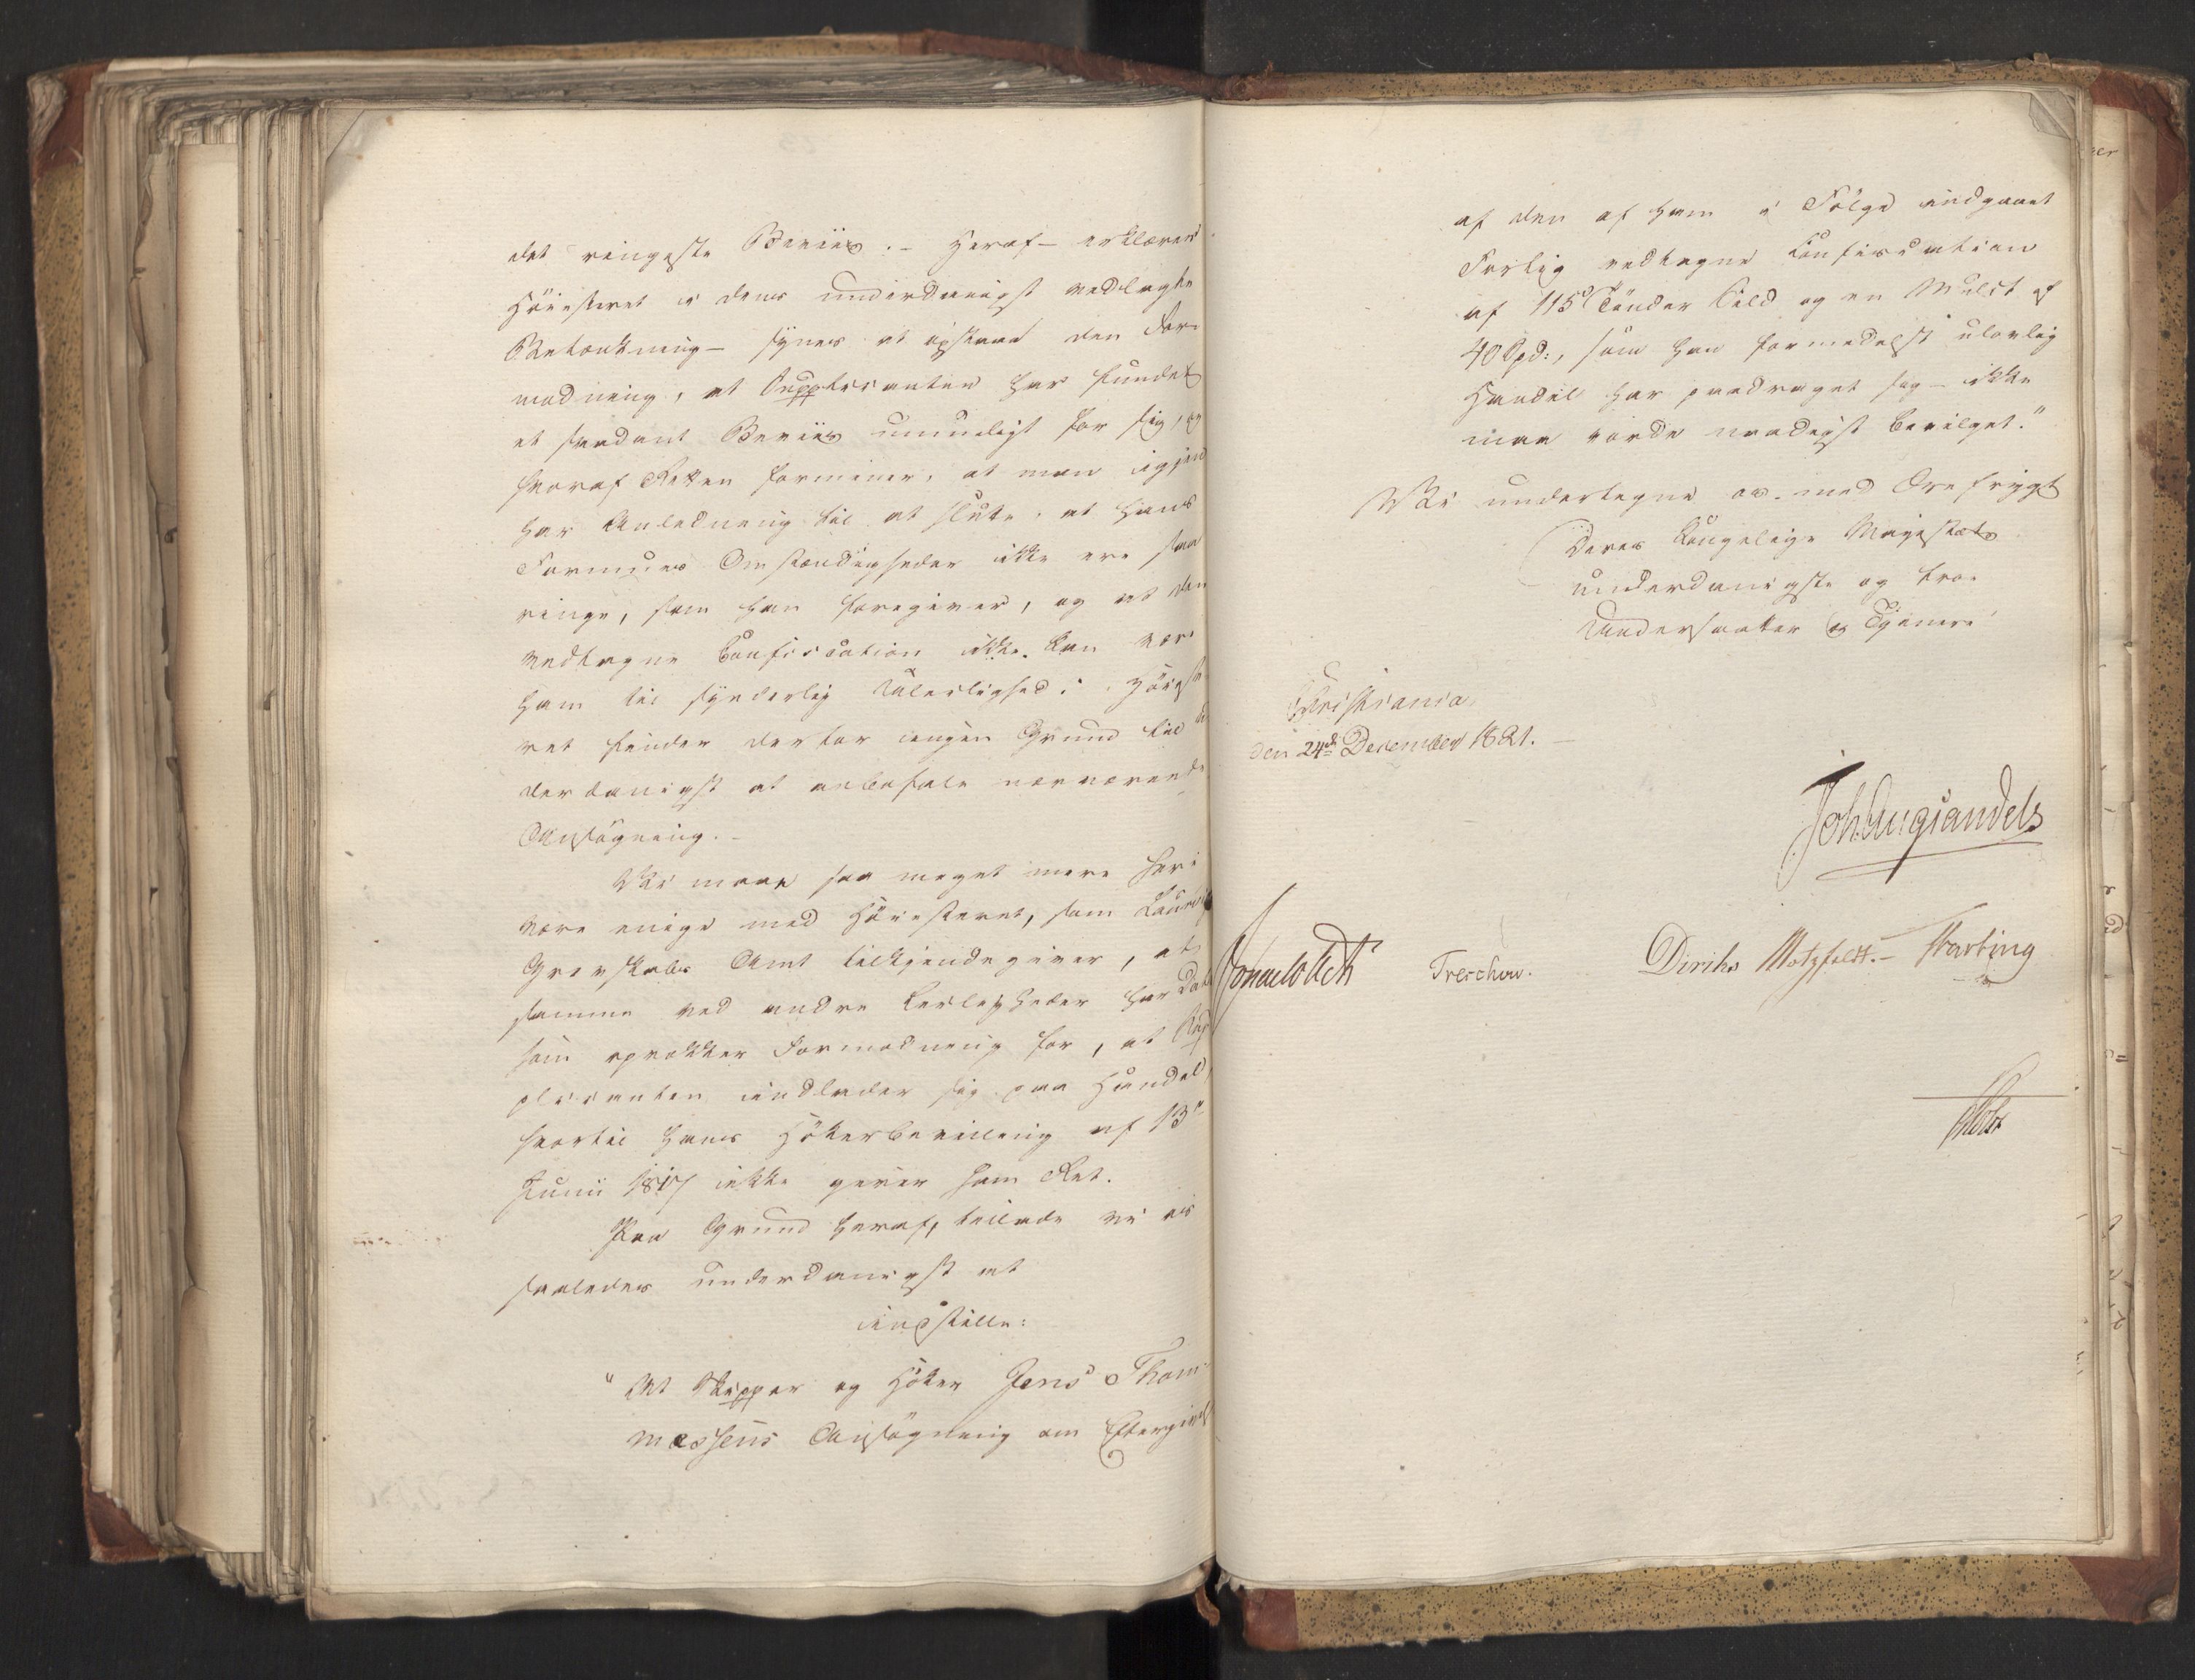 det ringeste Beviis. – Heraf – erklærer
Höiesteret i dens underdanigst vedlagte
Betænkning – synes at opstaae den For-
modning, at Supplicanten har fundet
et saadant Beviis unundligt for sig, og
hvoraf Retten formener, at man igjen
har Anledning til at slutte, at hans
Formues Omstændigheder ikke ere saa
ringe, som han foregiver, og at den
vedtagne Confiscation ikke kan være
ham til synderlig Uleilighed; Höieste-
ret finder derfor ingen Grund til un-
derdanigst at anbefale nærværende
Ansögning. –
Vi maae saa meget mere heri
være enige med Höiesteret, som Laurvigs
Grevskabs Amt tilkjendegiver, at
samme ved andre Leiligheder har Data
som opvækker Formodning for, at Sup-
plicanten indlader sig paa Handel,
hvortil hans Hökerbevilling af 13de
Junii 1817 ikke giver ham Ret.
Paa Grund heraf, tillade vi os
saaledes underdanigst at
indstille:
"At Skipper og Höker Jens Thom-
massens Ansögning om Eftergivelse
af den af ham i Fölge indgaaet
Forlig vedtagne Confiscation
af 115 Tönder Sild og en Mulct af
40 Spd:, som han formedelst ulovlig
Handel har paadraget sig – ikke
maa vorde naadigst bevilget."
Vi undertegne os med Ærefrygt
Deres Kongelige Majestæts
underdanigste og troe
Undersaatter og Tjenere
Christiania
den 24de December 1821. –
Joh. Aug. Sandels
Sommerhielm
Treschow.
Diriks Motzfeldt. – Starting
Holst